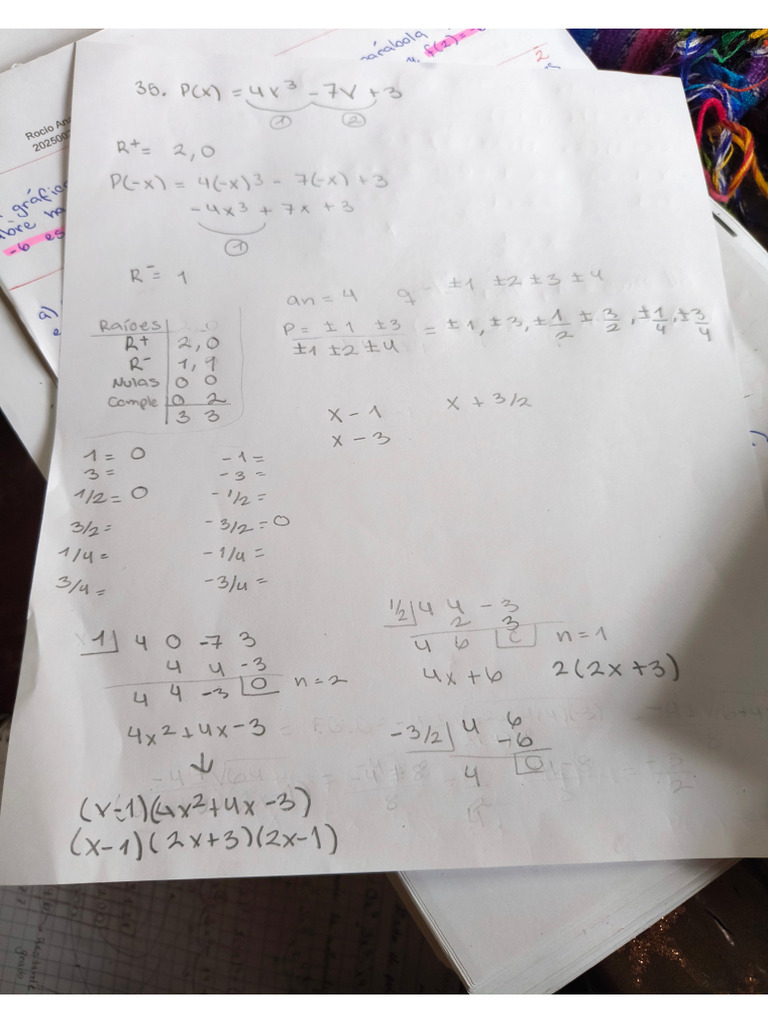 parábola
f(2)=
2
Rocío An
202500
gráfic
-6 es
a)
35. P(x) = 4x³ - 7x + 3
① ②
R⁺= 2,0
P(-x) = 4(-x)³ - 7(-x) + 3
-4x³ + 7x + 3
①
R⁻= 1
an = 4 q ±1 ±2 ±3 ±4
P = ±1 ±3 = ±1, ±3, ±1/2 ±3/2, ±1/4, ±3/4
±1 ±2 ±4
Raíces
R⁺ 2,0
R⁻ 1,1
Nulas 0 0
Comple 0 2
3 3
x - 1 x + 3/2
x - 3
1 = 0 -1 =
3 = -3 =
1/2 = 0 -1/2 =
3/2 = -3/2 = 0
1/4 = -1/4 =
3/4 = -3/4 =
1| 4 0 -7 3
4 4 -3
4 4 -3 |0 n = 2
4x² + 4x - 3
↓
(x-1)(4x²+4x-3)
(x-1)(2x+3)(2x-1)
1/2| 4 4 -3
2 3
4 6 |0 n = 1
4x + 6 2(2x+3)
-3/2| 4 6
-6
4 |0